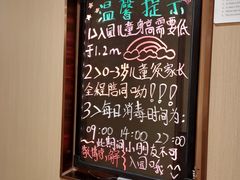 温馨提示
1>入园儿童身高需要低
于1.2m
2>0~3岁儿童须家长
全程陪同呦!!!
3>每日消毒时间为:
09:00 14:00 22:00
此期间小朋友不可
敬请谅解 入园哦~